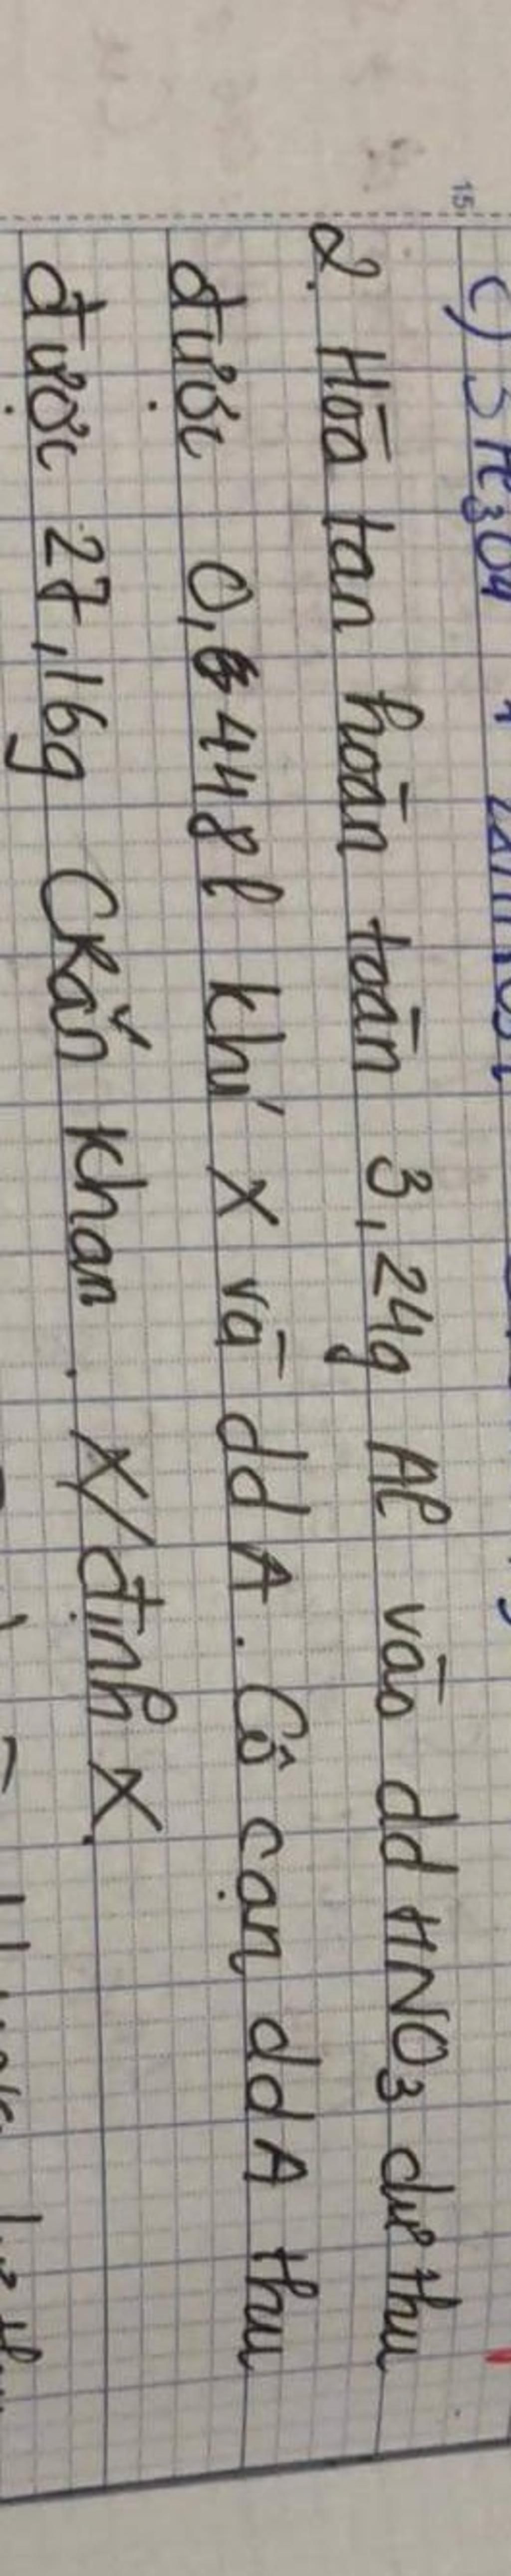 15
c) 3Fe3O4
2. Hòa tan hoàn toàn 3,24g Al vào dd HNO3 dư thu
được 0,448l khí X và dd A. Cô cạn dd A thu
được 27,16g Crắn khan. X/định X.